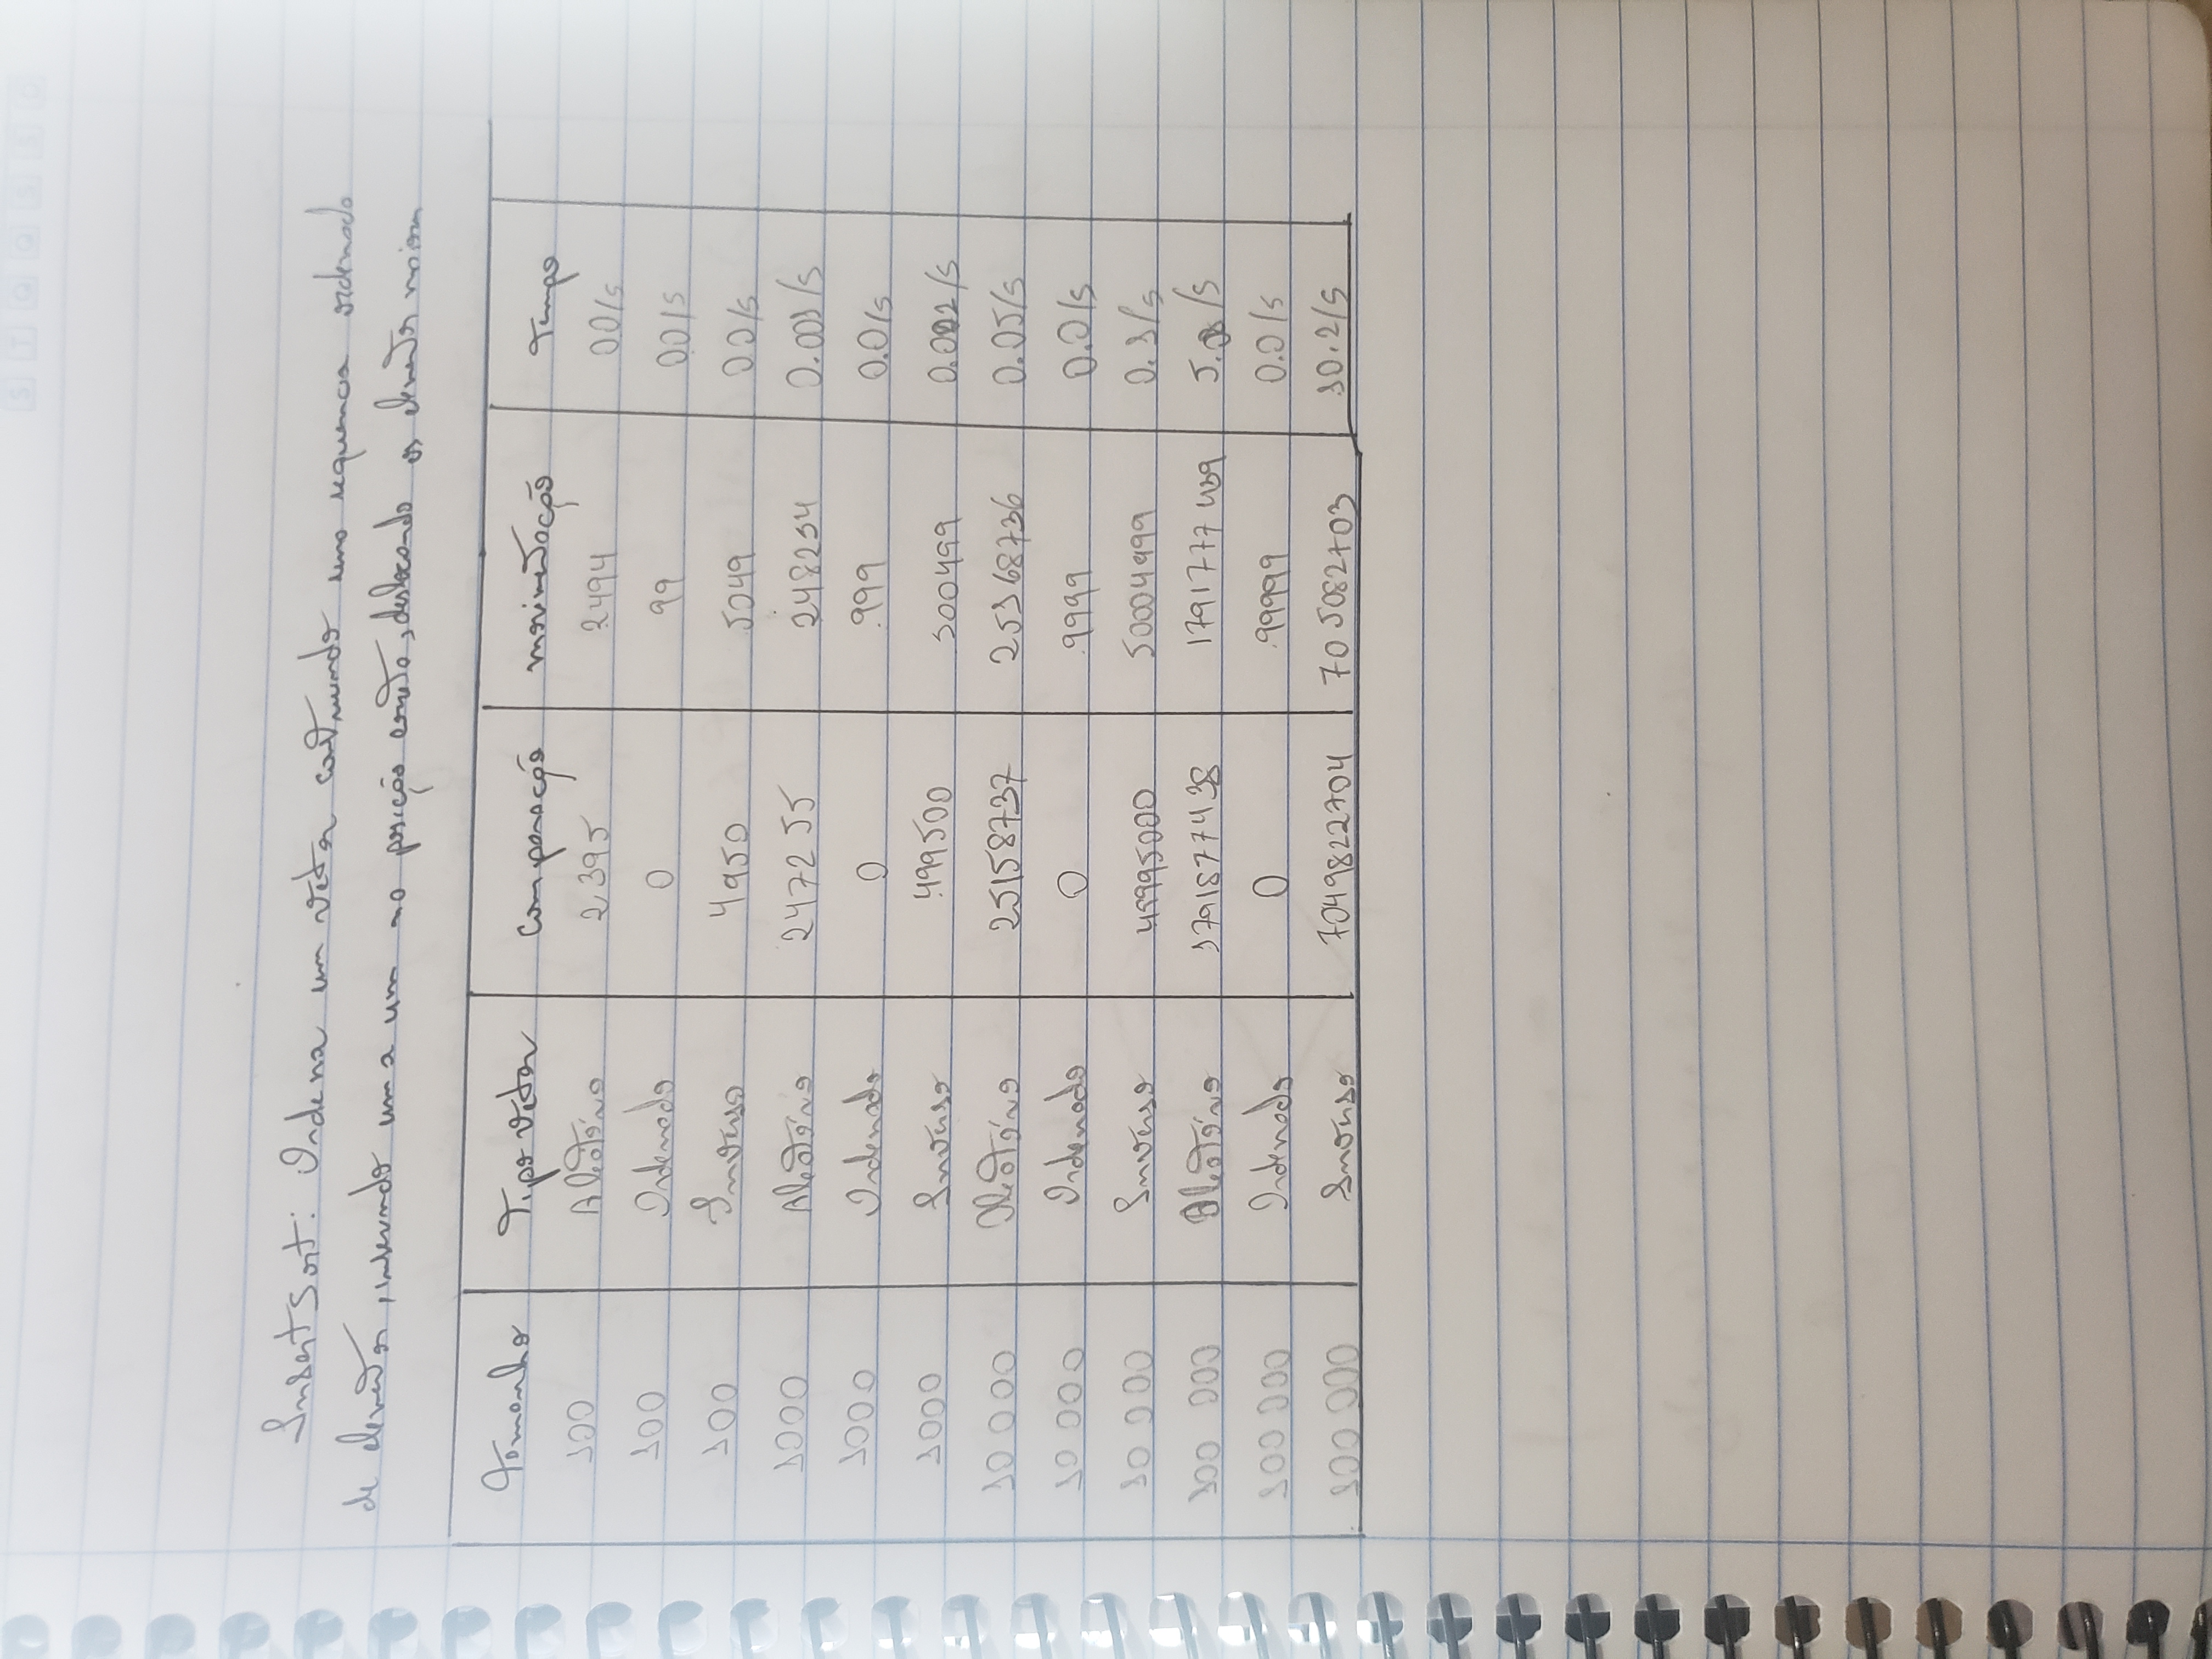 S T Q Q S S D
InsertSort: Ordena um vetor construindo uma sequencia ordenada
de elementos, inserindo um a um na posição correta, deslocando os elementos maiores
Tamanho Tipo vetor comparação movimentação Tempo
100 Aleatório 2395 2494 00/s
100 Ordenado 0 99 00/s
100 Inverso 4950 5049 00/s
1000 Aleatório 247255 248254 0.001/s
1000 Ordenado 0 999 0.0/s
1000 Inverso 499500 500499 0.002/s
10 000 Aleatório 25158737 25168736 0.05/s
10 000 Ordenado 0 9999 0.0/s
10 000 Inverso 49995000 50004999 0.1/s
100 000 Aleatório 1791877438 1791777439 /s
100 000 Ordenado 0 99999 0.0/s
100 000 Inverso 7049822704 705082703 10.2/s